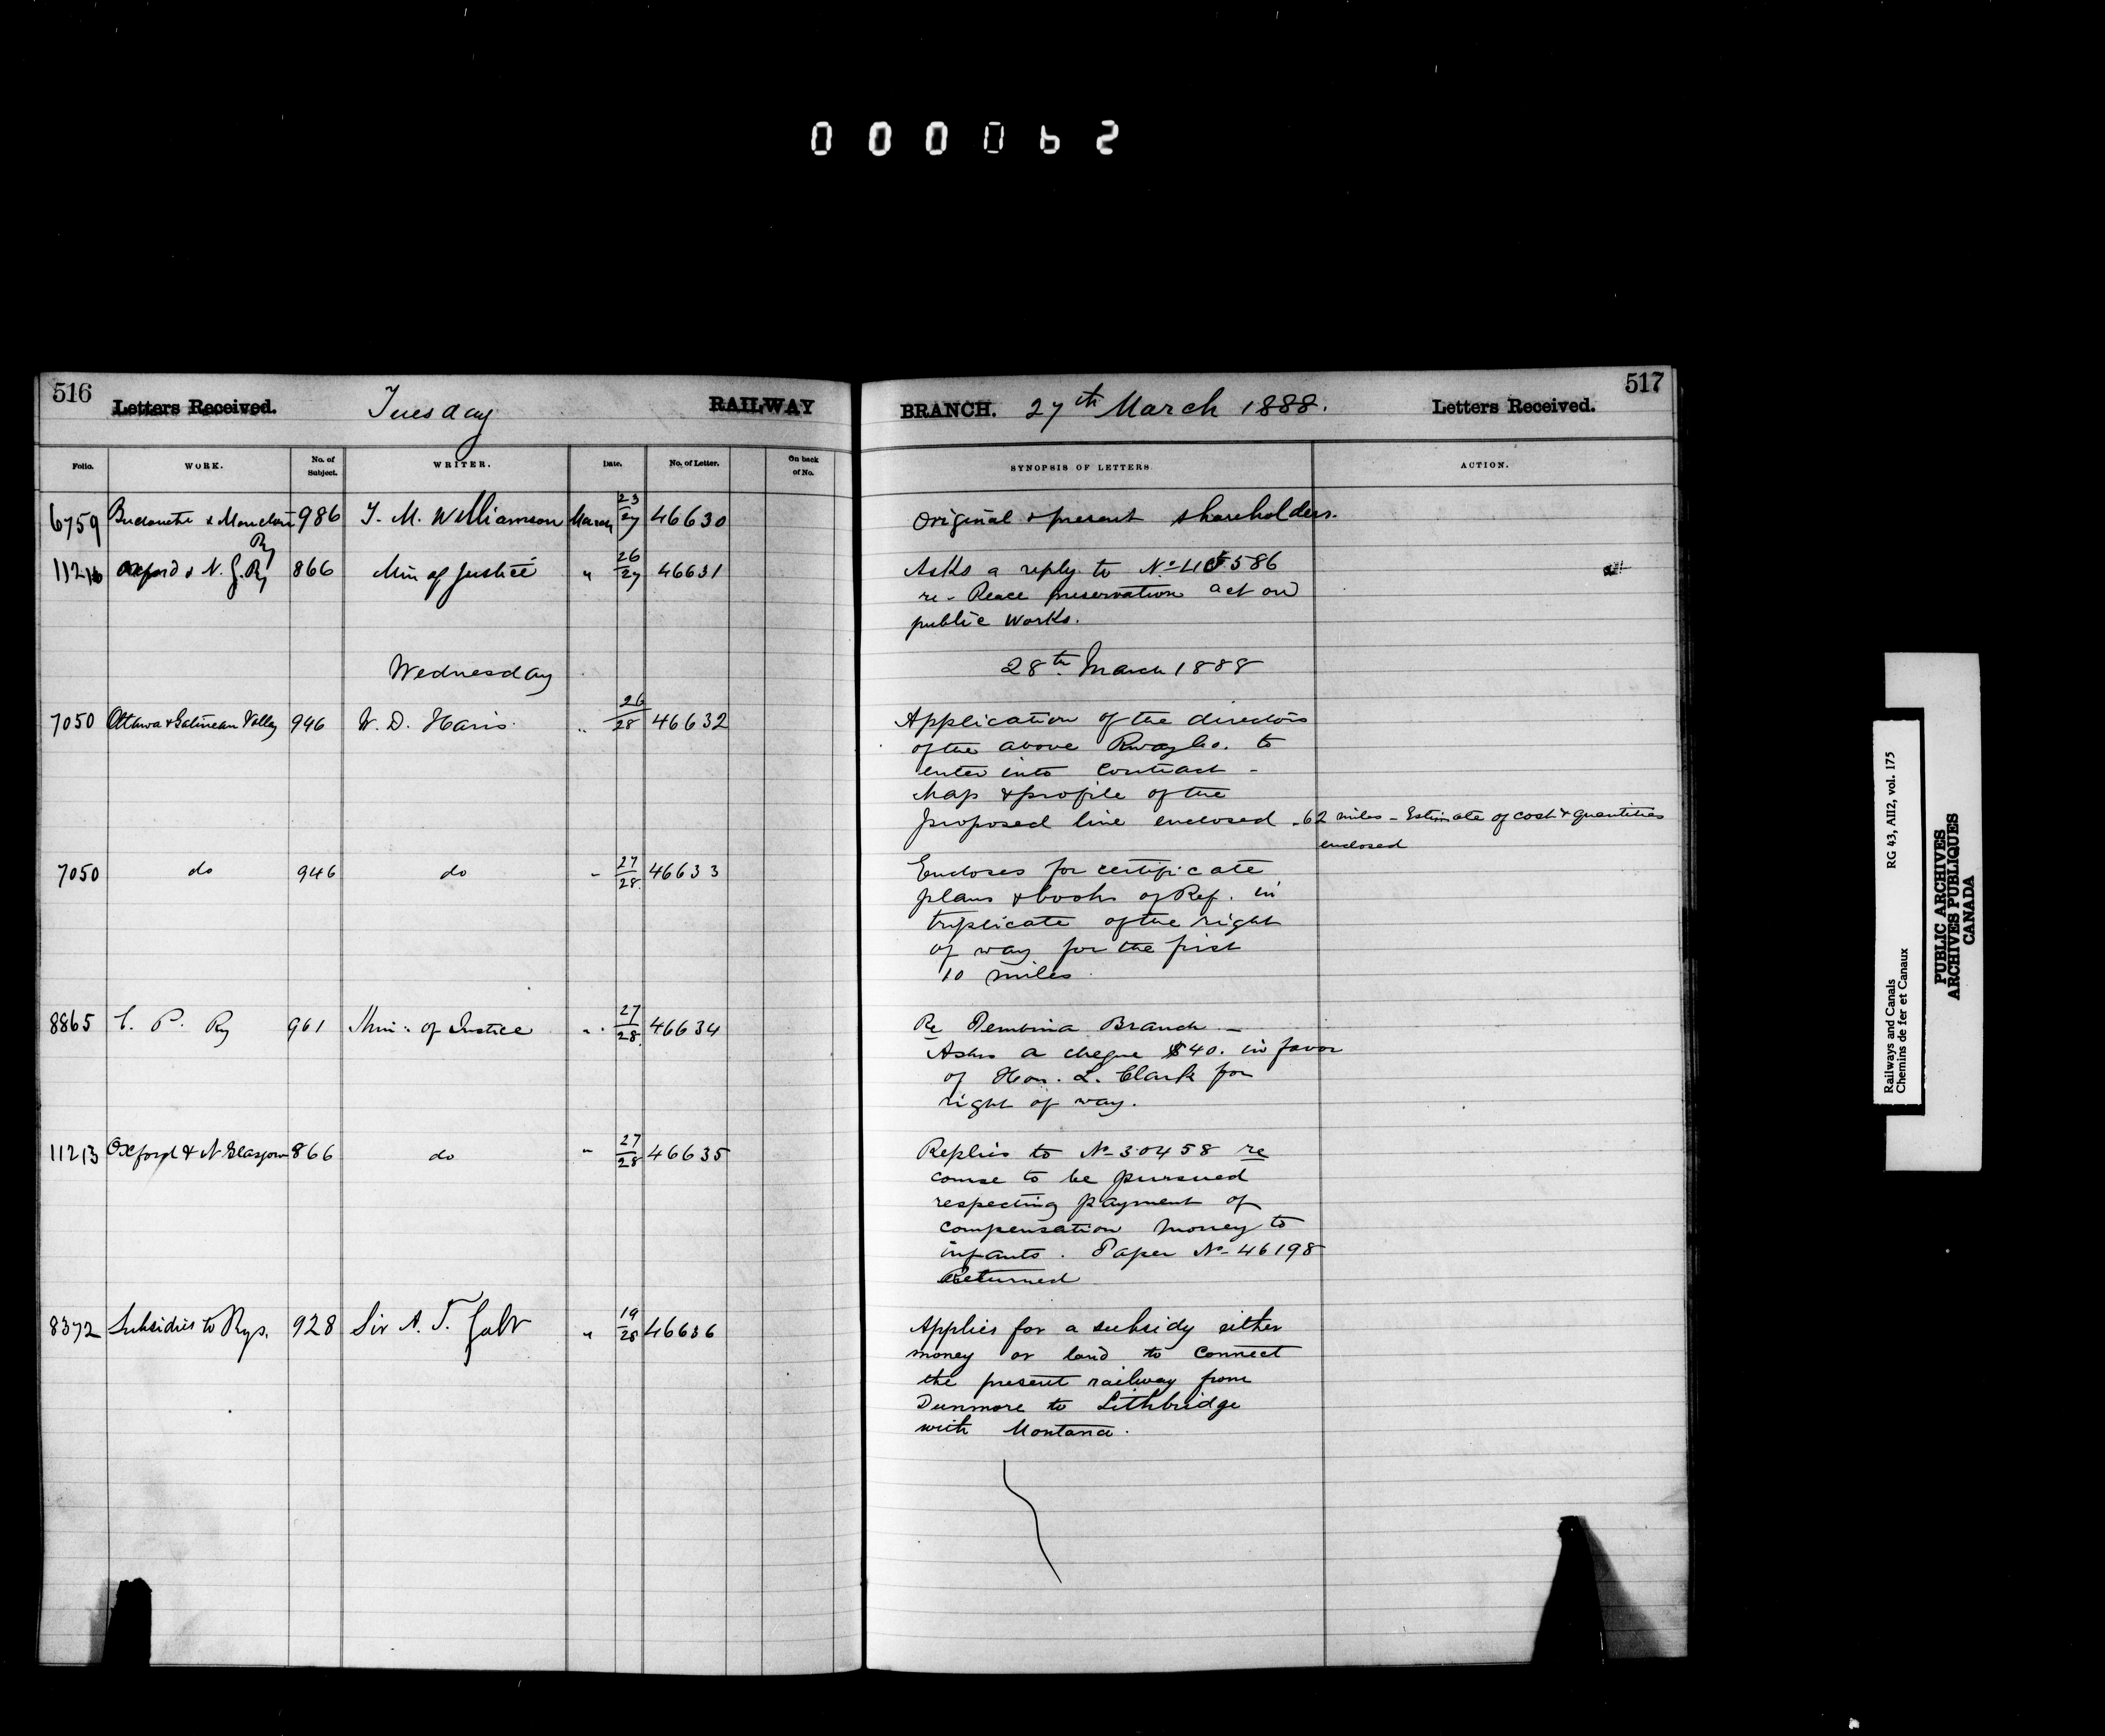 000062
516 Letters Received. Tuesday RAILWAY
Folio. WORK. No. of Subject. WRITER. Date. No. of Letter. On back of No.
6759 Buctouche & Moncton Ry 986 T. M. Williamson March 23/27 46630
11216 Oxford & N. G. Ry 866 Min of Justice " 26/27 46631
Wednesday
7050 Ottawa & Gatineau Valley 946 W. D. Haris " 26/28 46632
7050 do 946 do " 27/28 46633
8865 C. P. Ry 961 Min. of Justice " 27/28 46634
11213 Oxford & N Glasgow 866 do " 27/28 46635
8372 Subsidies to Rys. 928 Sir A. T. Galt " 19/28 46636
BRANCH. 27th March 1888. Letters Received. 517
SYNOPSIS OF LETTERS ACTION.
Original & present shareholders.
Asks a reply to No
re - Peace preservation act on
public works.
28th March 1888
Application of the directors
of the above Rway Co. to
enter into contract -
Map & profile of the
proposed line enclosed - 62 miles - Estimate of cost & quantities
enclosed
Encloses for certificate
plans & books of Ref. in
triplicate of the right
of way for the first
10 miles
Re Pembina Branch -
Asks a cheque $40. in favor
of Hon. L. Clark for
right of way.
Replies to No 30458 re
course to be pursued
respecting payment of
compensation money to
infants. Paper No 46198
Returned
Applies for a subsidy either
money or land to connect
the present railway from
Dunmore to Lithbridge
with Montana.
Railways and Canals RG 43, AII2, vol. 175
Chemins de fer et Canaux
PUBLIC ARCHIVES
ARCHIVES PUBLIQUES
CANADA